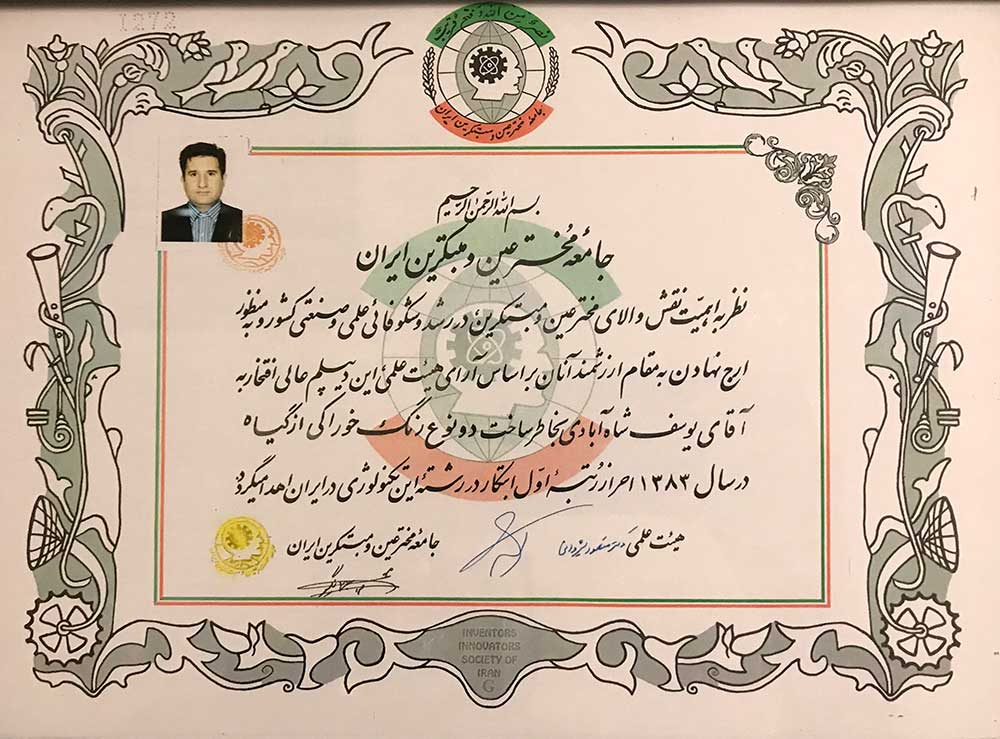 1272
نصر من الله و فتح قریب
جامعه مخترعین و مبتکرین ایران
بسم الله الرحمن الرحیم
جامعه مخترعین و مبتکرین ایران
نظر به اهمیت نقش والای مخترعین و مبتکرین در رشد و شکوفائی علمی و صنعتی کشور و به منظور
ارج نهادن به مقام ارزشمند آنان بر اساس آرای هیئت علمی این دیپلم عالی افتخار به
آقای یوسف شاه آبادی بخاطر ساخت دو نوع رنگ خوراکی از گیاه
در سال ۱۳۸۳ احراز رتبهٔ اوّل ابتکار در رشتهٔ این تکنولوژی در ایران اهدا میگردد
هیئت علمی دکتر منصور
جامعه مخترعین و مبتکرین ایران
INVENTORS
INNOVATORS
SOCIETY OF
IRAN
G